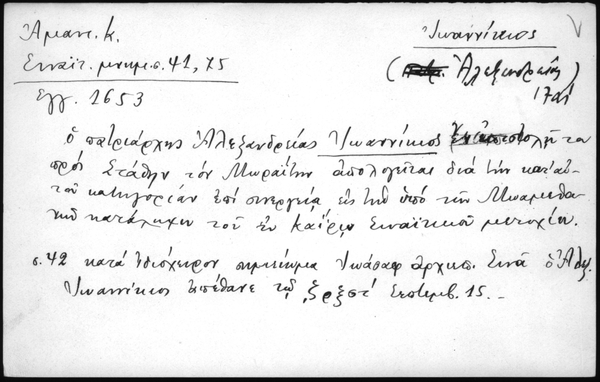 Ἄμαν. Κ.
Σιναϊτ. μνημ. σ. 41, 75
Ἔγγ. 1653
Ἰωαννίκιος
(Ἀλεξανδρείας)
ὁ πατριάρχης Ἀλεξανδρείας Ἰωαννίκιος
πρὸς Στάθην τὸν Μωραΐτην ἀπολογεῖται διὰ τὴν κατ' αὐ-
τοῦ κατηγορίαν ἐπὶ συνεργείᾳ εἰς τὴν ὑπὸ τῶν Μωαμεθα-
νῶν κατάληψιν τοῦ ἐν Καΐρῳ Σιναϊτικοῦ μετοχίου.
σ. 42 κατὰ ἰδιόχειρον σημείωμα Ἰωάσαφ ἀρχιεπ. Σινᾶ ὁ Ἀλεξ.
Ἰωαννίκιος ἀπέθανε τῷ ͵ζρξστ´ Σεπτεμβ. 15.